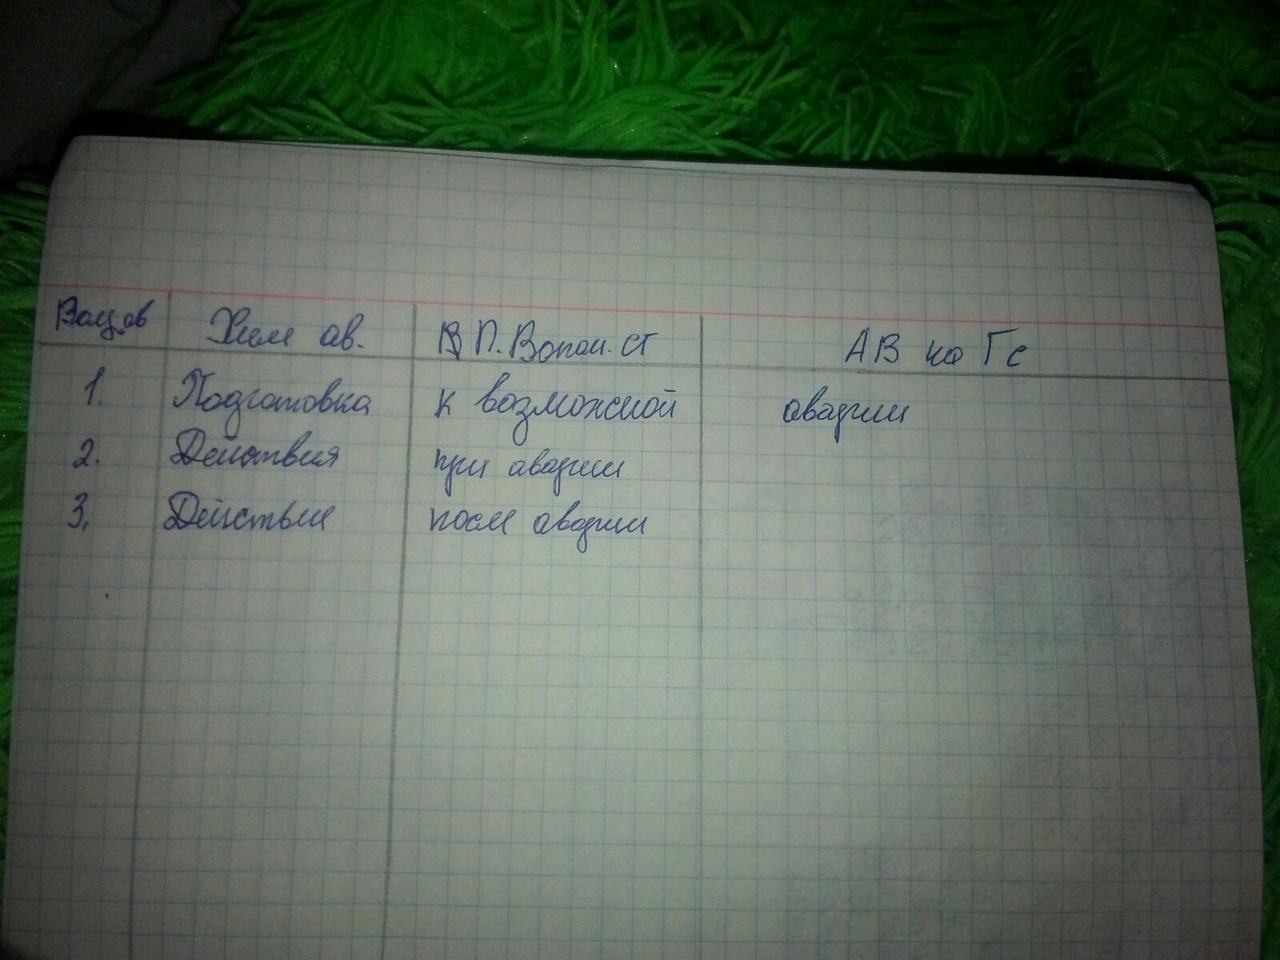 Хим ав. В П. Взпом. ст АВ на Гс
1. Подготовка к возможной аварии
2. Действия при аварии
3. Действия после аварии